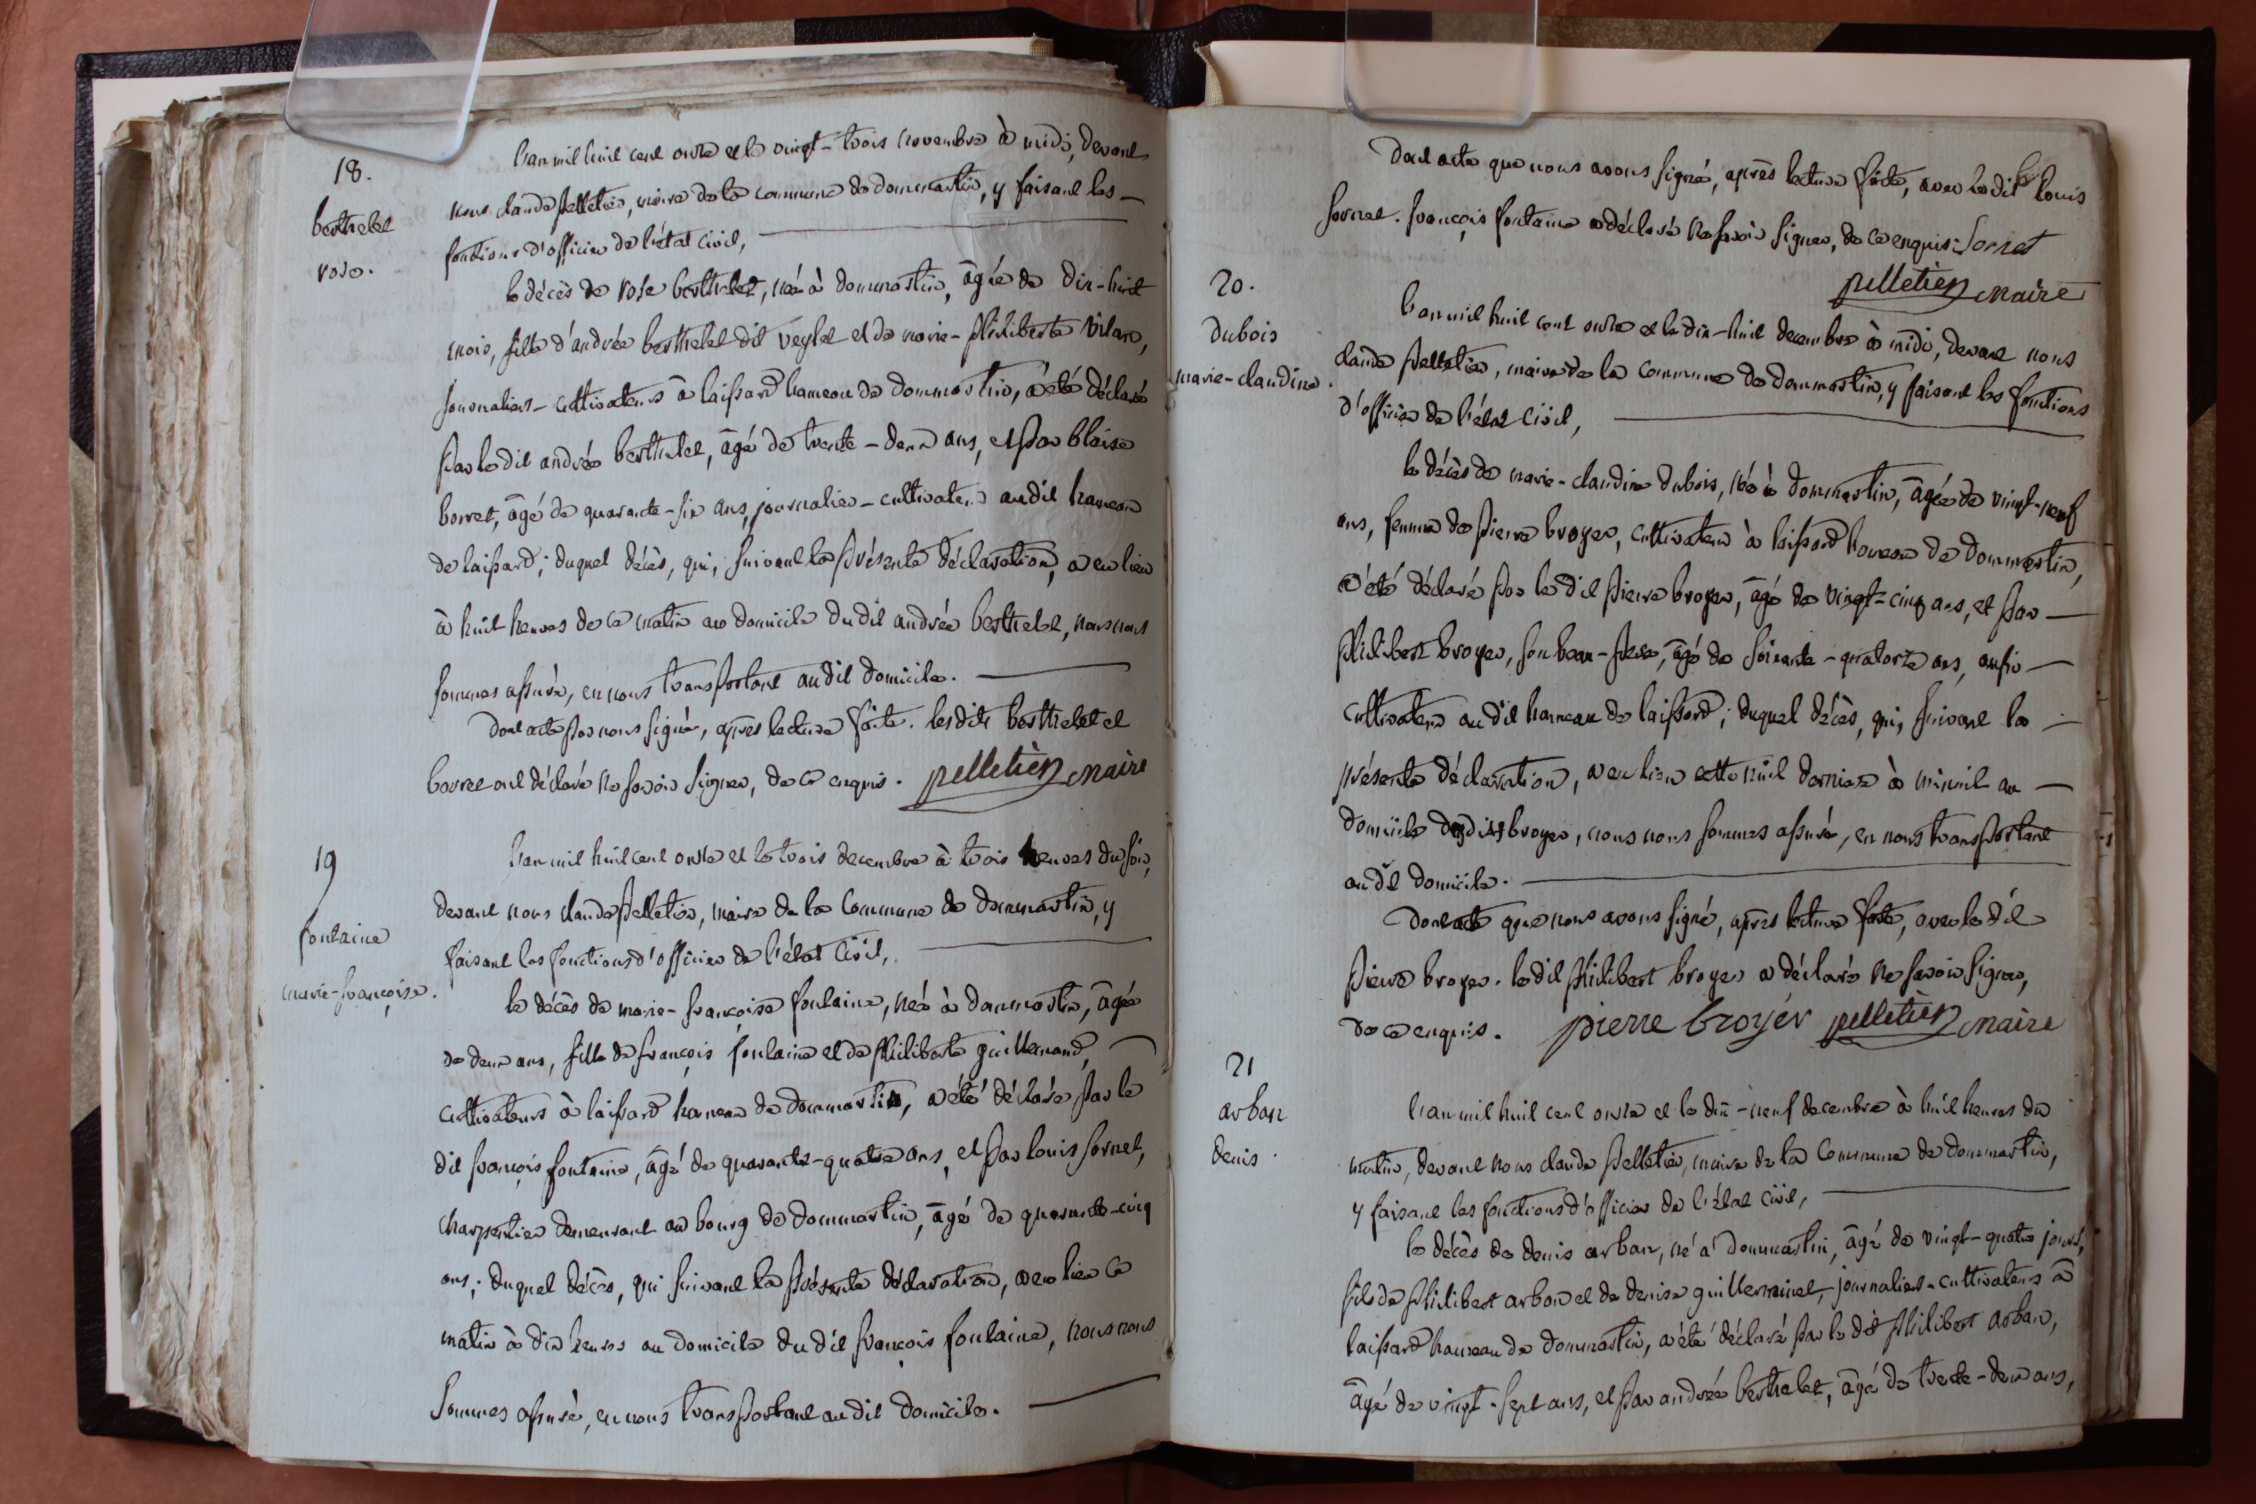 18.
berthelet
rose.
L'an mil huit cent onze et le vingt-trois novembre à midi, devant
nous claude pelletier, maire de la commune de dommartin, y faisant les
fonctions d'officier de l'état civil,
le décès de rose berthelet, née à dommartin, âgée de dix-huit
mois, fille d'andrée berthelet dit veylet et de marie-philiberte vilar,
journaliers-cultivateurs à laissard hameau de dommartin, a été déclaré
par le dit andrée berthelet, âgé de trente-deux ans, et par blaise
borret, âgé de quarante-six ans, journalier-cultivateur audit hameau
de laissard; duquel décès, qui, suivant la présente déclaration, a eu lieu
à huit heures de ce matin au domicile du dit andrée berthelet, nous nous
sommes assuré, en nous transportant audit domicile.
Dont acte par nous signé, après lecture faite. les dits berthelet et
borret ont déclaré ne savoir signer, de ce enquis. pelletier maire
19
fontaine
marie-françoise.
L'an mil huit cent onze et le trois decembre à trois heures du soir,
devant nous claude pelletier, maire de la commune de dommartin, y
faisant les fonctions d'officier de l'état civil,
le décès de marie-françoise fontaine, née à dommartin, âgée
de deux ans, fille de françois fontaine et de philiberte guillemaud,
cultivateurs à laissard hameau de dommartin, a été déclaré par le
dit françois fontaine, âgé de quarante-quatre ans, et par louis sornet,
charpentier demeurant au bourg de dommartin, âgé de quarante-cinq
ans; duquel décès, qui suivant la présente déclaration, a eu lieu ce
matin à dix heures au domicile du dit françois fontaine, nous nous
sommes assuré, en nous transportant audit domicile.
Dont acte que nous avons signé, après lecture faite, avec le dit louis
sornet. françois fontaine a déclaré ne savoir signer, de ce enquis. Sornet
pelletier maire
20.
dubois
marie-claudine.
L'an mil huit cent onze et le dix-huit decembre à midi, devant nous
claude pelletier, maire de la commune de dommartin, y faisant les fonctions
d'officier de l'état civil,
le décès de marie-claudine dubois, née à dommartin, âgée de vingt-neuf
ans, femme de pierre broyer, cultivateur à laissard hameau de dommartin,
a été déclaré par le dit pierre broyer, âgé de vingt-cinq ans, et par
philibert broyer, son beau-père, âgé de soixante-quatorze ans, aussi
cultivateur audit hameau de laissard; duquel décès, qui, suivant la
présente déclaration, a eu lieu cette nuit derniere à minuit au
domicile desdits broyer, nous nous sommes assuré, en nous transportant
audit domicile.
Dont acte que nous avons signé, après lecture faite, avec le dit
pierre broyer. le dit philibert broyer a déclaré ne savoir signer,
de ce enquis. pierre broyer pelletier maire
21
arban
denis.
L'an mil huit cent onze et le dix-neuf decembre à huit heures du
matin, devant nous claude pelletier, maire de la commune de dommartin,
y faisant les fonctions d'officier de l'état civil,
le décès de denis arban, né à dommartin, âgé de vingt-quatre jours,
fils de philibert arban et de denise guilleminet, journaliers-cultivateurs à
laissard hameau de dommartin, a été déclaré par le dit philibert arban,
âgé de vingt-sept ans, et par andrée berthelet, âgé de trente-deux ans,